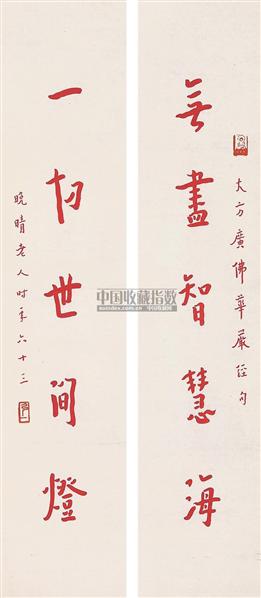 大方廣佛華嚴經句
無盡智慧海
一切世間燈
晚晴老人時年六十三
中国收藏指数